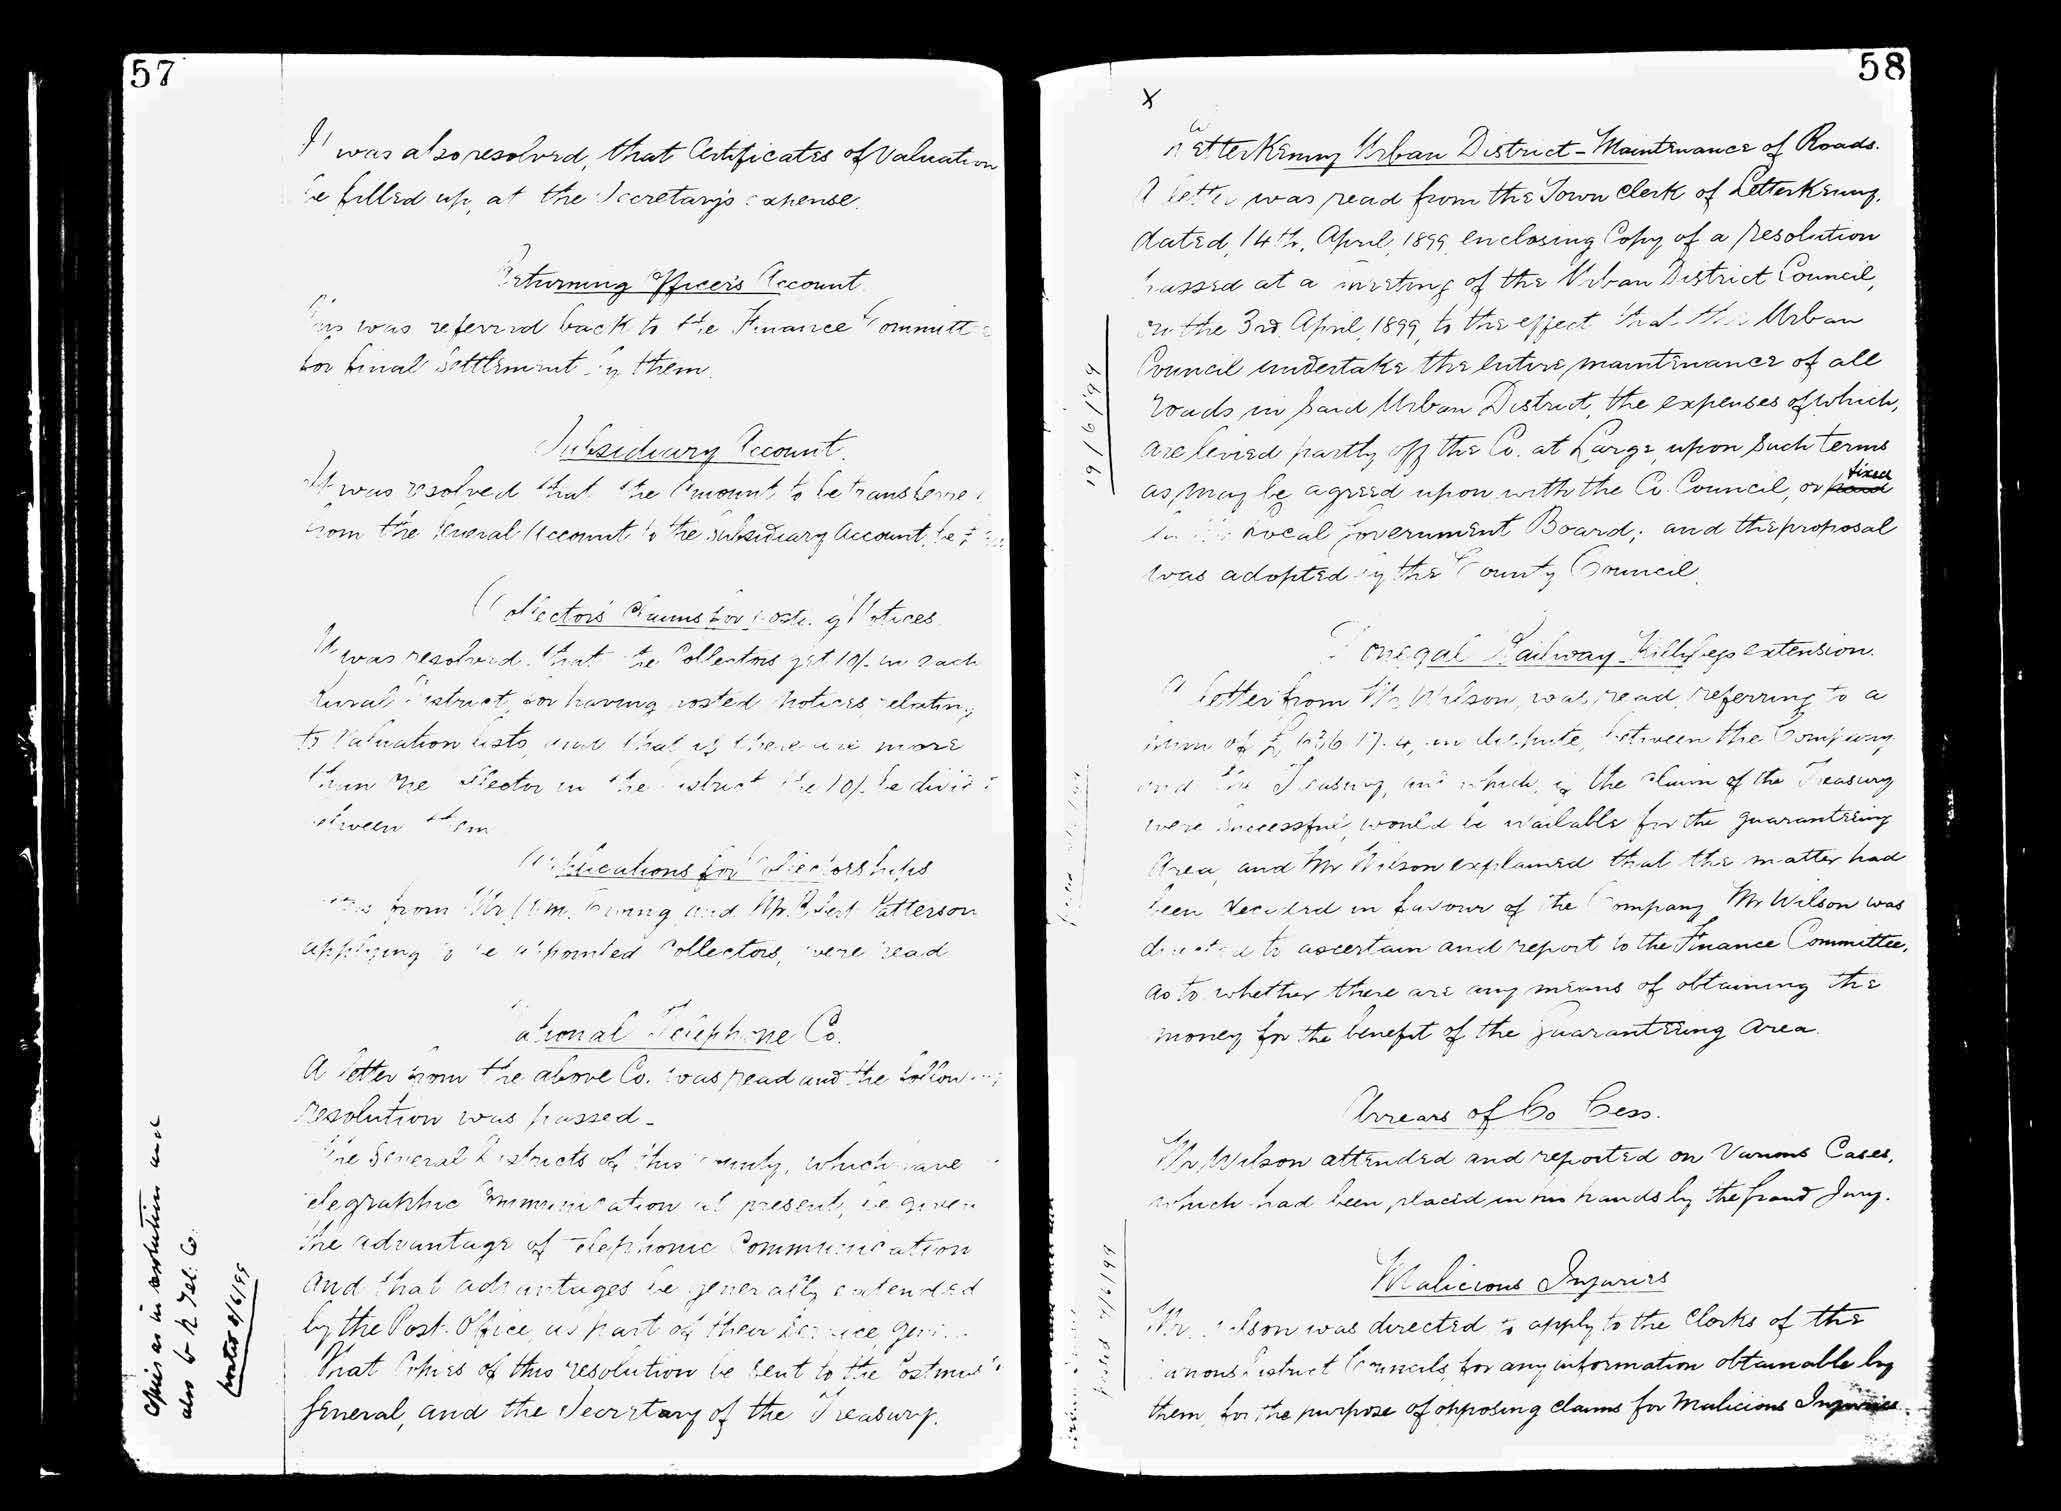 57
It was also resolved, that Certificates of Valuation
be filled up, at the Secretary's expense.
Returning Officer's Account
This was referred back to the Finance Committee
for final Settlement by them.
Subsidiary Account.
It was resolved that the Amount to be transferred
from the General Account to the Subsidiary Account, be £
Collectors' Claims for Posting Notices.
It was resolved, that the Collectors get 10/- in each
Rural District, for having posted Notices, relating
to Valuation lists, and that if there are more
than one Collector in the District the 10/- be divided
between them
Applications for Collectorships
from Mr Wm. Ewing and Mr Robert Patterson
applying to be appointed Collectors, were read
National Telephone Co.
A letter from the above Co. was read and the following
resolution was passed -
The Several Districts of this County, which have
telegraphic Communication at present, be given
the advantage of telephonic Communication
and that advantages be generally extended
by the Post Office, as part of their Service,
That Copies of this resolution be sent to the Postmaster
General, and the Secretary of the Treasury.
Copies as in resolution and
also to N. Tel. Co.
wrote 8/6/99
58
x
Letterkenny Urban District - Maintenance of Roads.
A letter was read from the Town Clerk of Letterkenny,
dated, 14th, April, 1899, enclosing Copy of a resolution
passed at a meeting of the Urban District Council,
on the 3rd April, 1899, to the effect that this Urban
Council undertake the future maintenance of all
roads in said Urban District, the expenses of which,
are levied partly off the Co. at Large, upon such terms
as may be agreed upon with the Co. Council, or fixed
by the Local Government Board; and the proposal
was adopted by the County Council.
19/6/99
Donegal Railway - Killybegs extension.
A letter from Mr Wilson, was read, referring to a
sum of £ 636.17.4, in dispute, between the Company
and the Treasury, and which, if the claim of the Treasury
were successful, would be available for the guaranteeing
Area, and Mr Wilson explained that the matter had
been decided in favour of the Company. Mr Wilson was
directed to ascertain and report to the Finance Committee,
as to whether there are any means of obtaining the
money for the benefit of the Guaranteeing Area.
Arrears of Co Cess.
Mr Wilson attended and reported on Various Cases,
which had been placed in his hands by the Grand Jury.
Malicious Injuries
Mr Wilson was directed to apply to the Clerks of the
various District Councils, for any information obtainable by
them, for the purpose of opposing claims for Malicious Injuries
posted 7/6/99